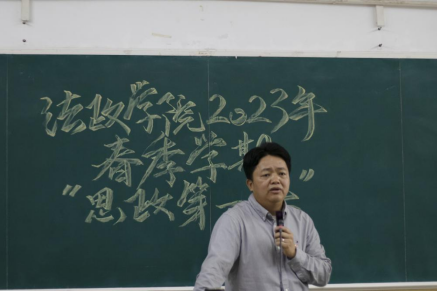 法政学院2023年
春季学期
“思政第一”